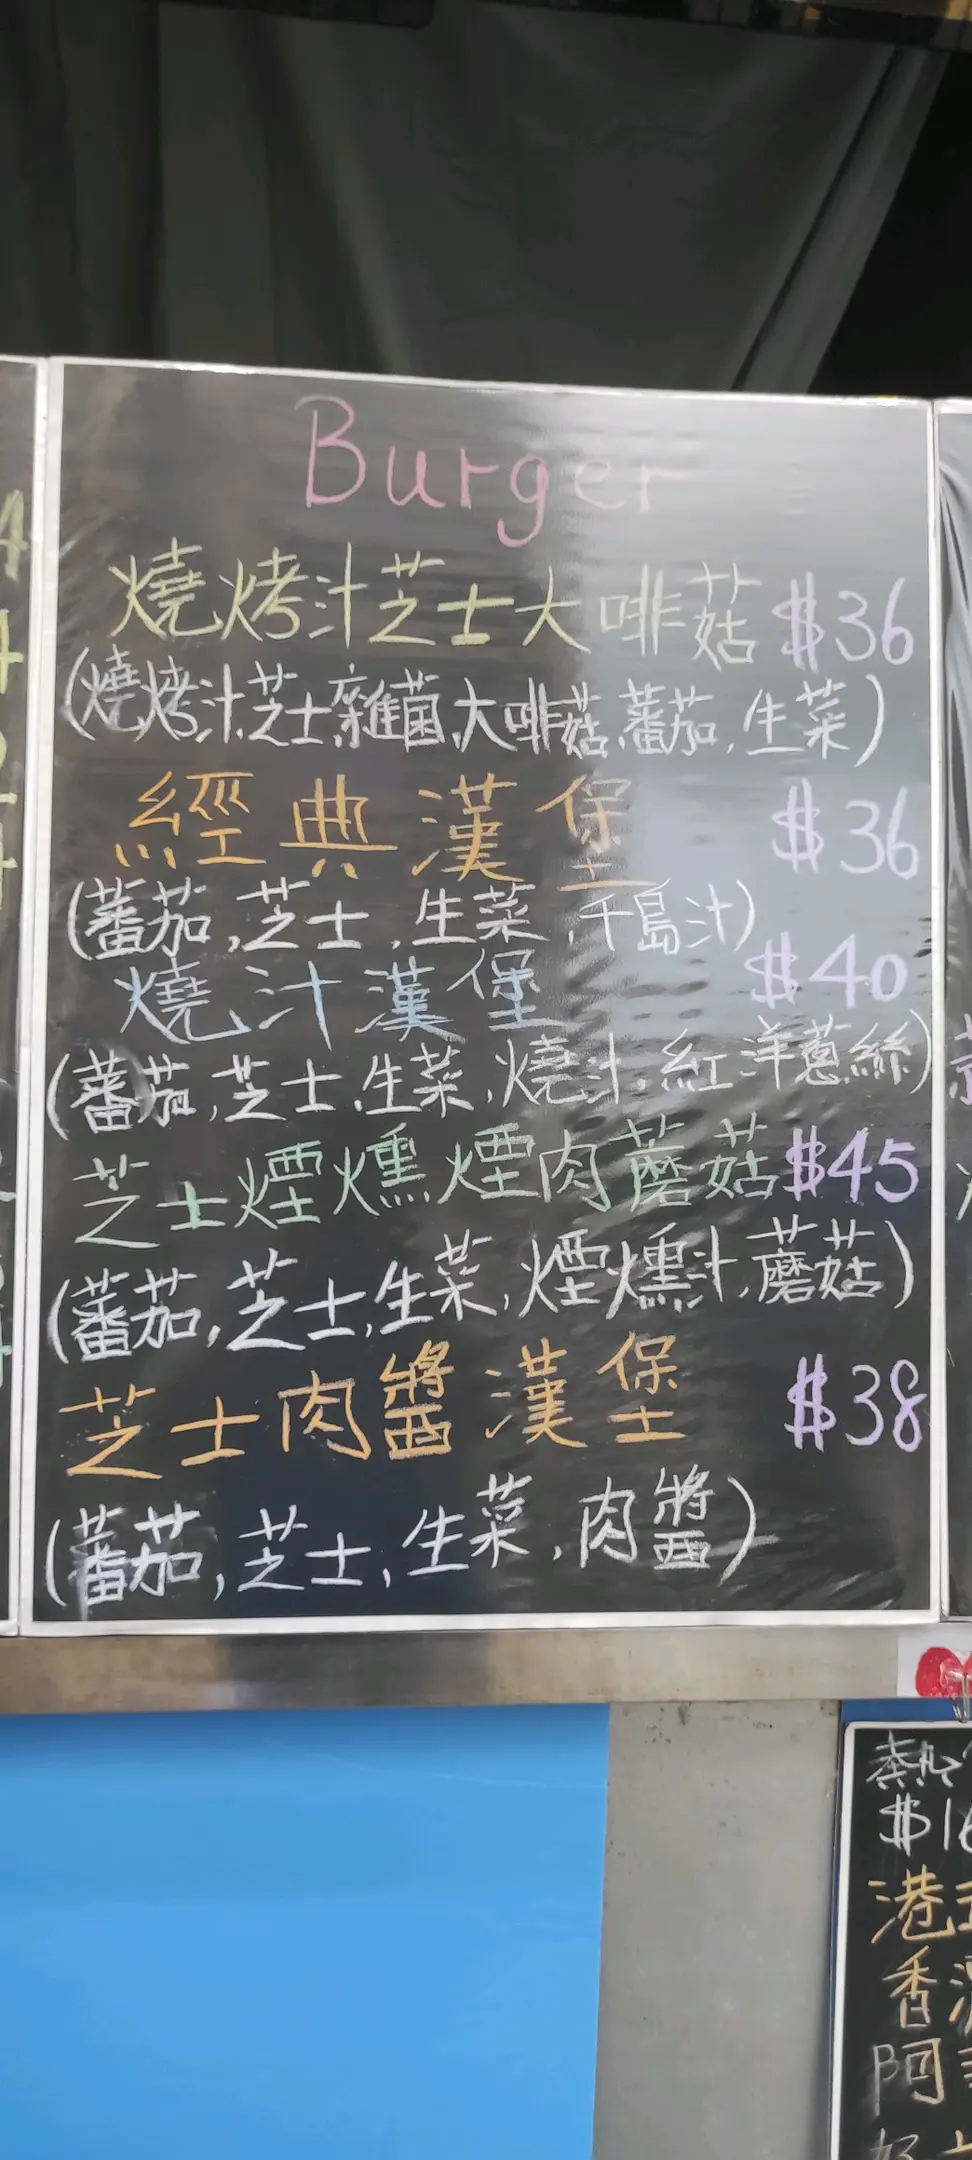 Burger
燒烤汁芝士大啡菇 $36
(燒烤汁,芝士,雜菌,大啡菇,蕃茄,生菜)
經典漢堡 $36
(蕃茄,芝士,生菜,千島汁)
燒汁漢堡 $40
(蕃茄,芝士,生菜,燒汁,紅洋蔥絲)
芝士煙燻煙肉蘑菇 $45
(蕃茄,芝士,生菜,煙燻汁,蘑菇)
芝士肉醬漢堡 $38
(蕃茄,芝士,生菜,肉醬)
熱
$16
港
香
阿